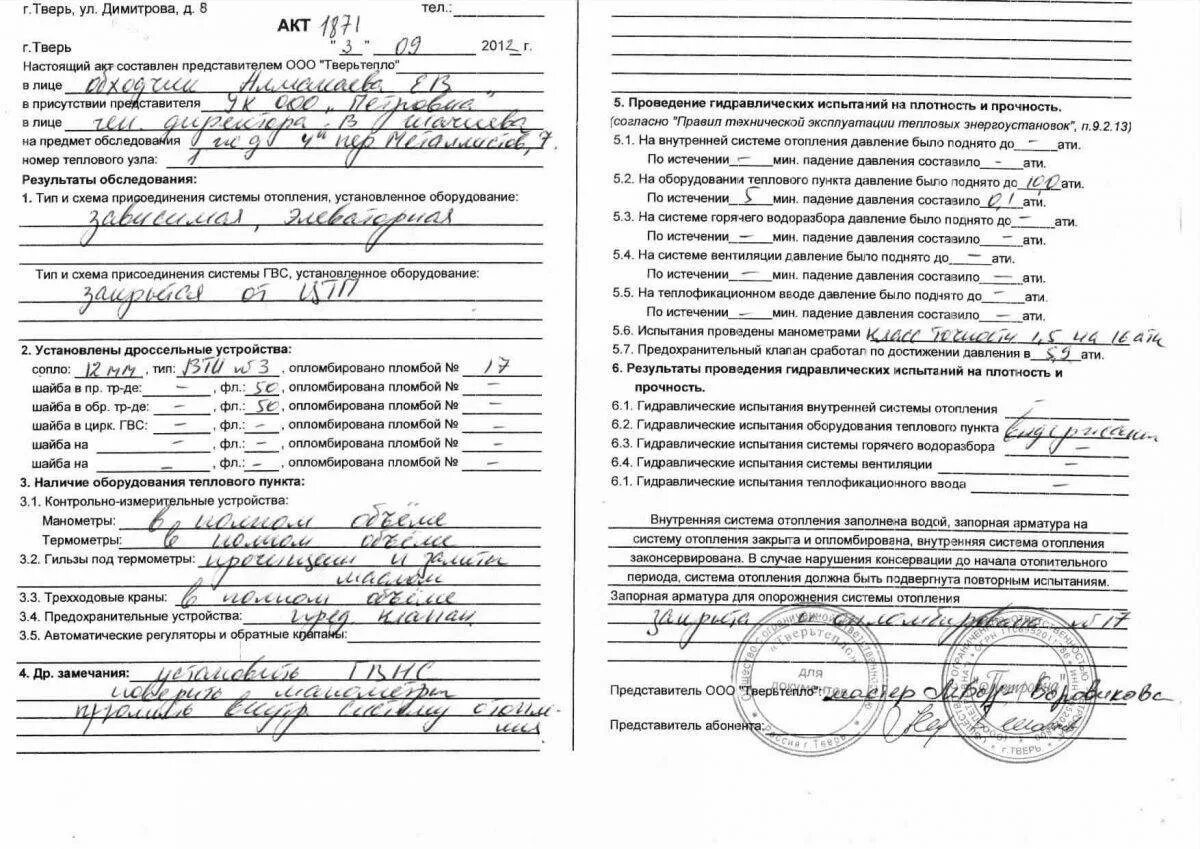 г.Тверь, ул. Димитрова, д. 8 тел.:
АКТ 1871
г.Тверь "3" 09 2012 г.
Настоящий акт составлен представителем ООО "Тверьтепло"
в лице обходчик ЕВ
в присутствии представителя УК ООО „Петровна"
в лице ген. директора В
на предмет обследования ж д 4й пер Металлистов, 7.
номер теплового узла: 1
Результаты обследования:
1. Тип и схема присоединения системы отопления, установленное оборудование:
зависимая, элеваторная
Тип и схема присоединения системы ГВС, установленное оборудование:
закрытая от ЦТП
2. Установлены дроссельные устройства:
сопло: 12 мм, тип: ВТИ №3, опломбировано пломбой № 17
шайба в пр. тр-де: –, фл.: 50, опломбировано пломбой № –
шайба в обр. тр-де: –, фл.: 50, опломбировано пломбой № –
шайба в цирк. ГВС: –, фл.: –, опломбировано пломбой № –
шайба на –, фл.: –, опломбировано пломбой № –
шайба на –, фл.: –, опломбировано пломбой № –
3. Наличие оборудования теплового пункта:
3.1. Контрольно-измерительные устройства:
Манометры: в полном объёме
Термометры: в полном объёме
3.2. Гильзы под термометры: прочищены и залиты
маслом
3.3. Трехходовые краны: в полном объёме
3.4. Предохранительные устройства: пред. клапан
3.5. Автоматические регуляторы и обратные клапаны:
4. Др. замечания: установить ГВНС
поверить манометры
промыть внутр систему отопле-
ния
5. Проведение гидравлических испытаний на плотность и прочность.
(согласно "Правил технической эксплуатации тепловых энергоустановок", п.9.2.13)
5.1. На внутренней системе отопления давление было поднято до – ати.
По истечении – мин. падение давления составило – ати.
5.2. На оборудовании теплового пункта давление было поднято до 10,0 ати.
По истечении 5 мин. падение давления составило 0,1 ати.
5.3. На системе горячего водоразбора давление было поднято до – ати.
По истечении – мин. падение давления составило – ати.
5.4. На системе вентиляции давление было поднято до – ати.
По истечении – мин. падение давления составило – ати.
5.5. На теплофикационном вводе давление было поднято до – ати.
По истечении – мин. падение давления составило – ати.
5.6. Испытания проведены манометрами класс точности 1,5 на 16 ати
5.7. Предохранительный клапан сработал по достижении давления в 5,9 ати.
6. Результаты проведения гидравлических испытаний на плотность и
прочность.
6.1. Гидравлические испытания внутренней системы отопления –
6.2. Гидравлические испытания оборудования теплового пункта выдержаны
6.3. Гидравлические испытания системы горячего водоразбора –
6.4. Гидравлические испытания системы вентиляции –
6.1. Гидравлические испытания теплофикационного ввода –
Внутренняя система отопления заполнена водой, запорная арматура на
систему отопления закрыта и опломбирована, внутренняя система отопления
законсервирована. В случае нарушения консервации до начала отопительного
периода, система отопления должна быть подвергнута повторным испытаниям.
Запорная арматура для опорожнения системы отопления
закрыта и опломбирована №17
Представитель ООО "Тверьтепло": мастер Боровикова
Представитель абонента:
"Тверьтепло"
ДЛЯ
ДОКУМЕНТОВ
Россия г. Тверь
"Петровна"
г. ТВЕРЬ